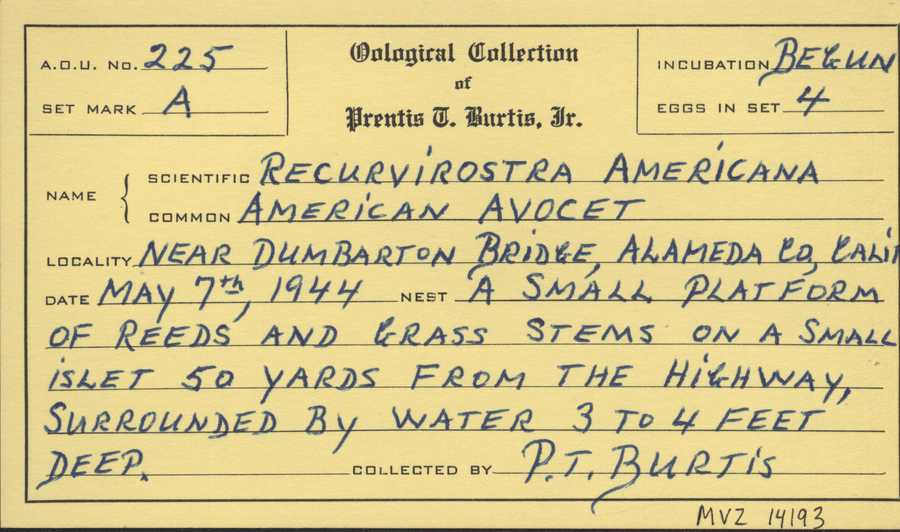 A.O.U. No. 225
Oological Collection
INCUBATION BEGUN
SET MARK A
of
EGGS IN SET 4
Prentis T. Burtis, Jr.
NAME { SCIENTIFIC RECURVIROSTRA AMERICANA
COMMON AMERICAN AVOCET
LOCALITY NEAR DUMBARTON BRIDGE, ALAMEDA CO, CALIF
DATE MAY 7th, 1944 NEST A SMALL PLATFORM
OF REEDS AND GRASS STEMS ON A SMALL
ISLET 50 YARDS FROM THE HIGHWAY,
SURROUNDED BY WATER 3 TO 4 FEET
DEEP. COLLECTED BY P.T. BURTIS
MVZ 14193